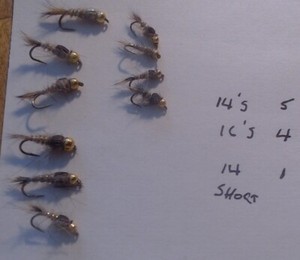 14's 5
16's 4
14 1
SHORT